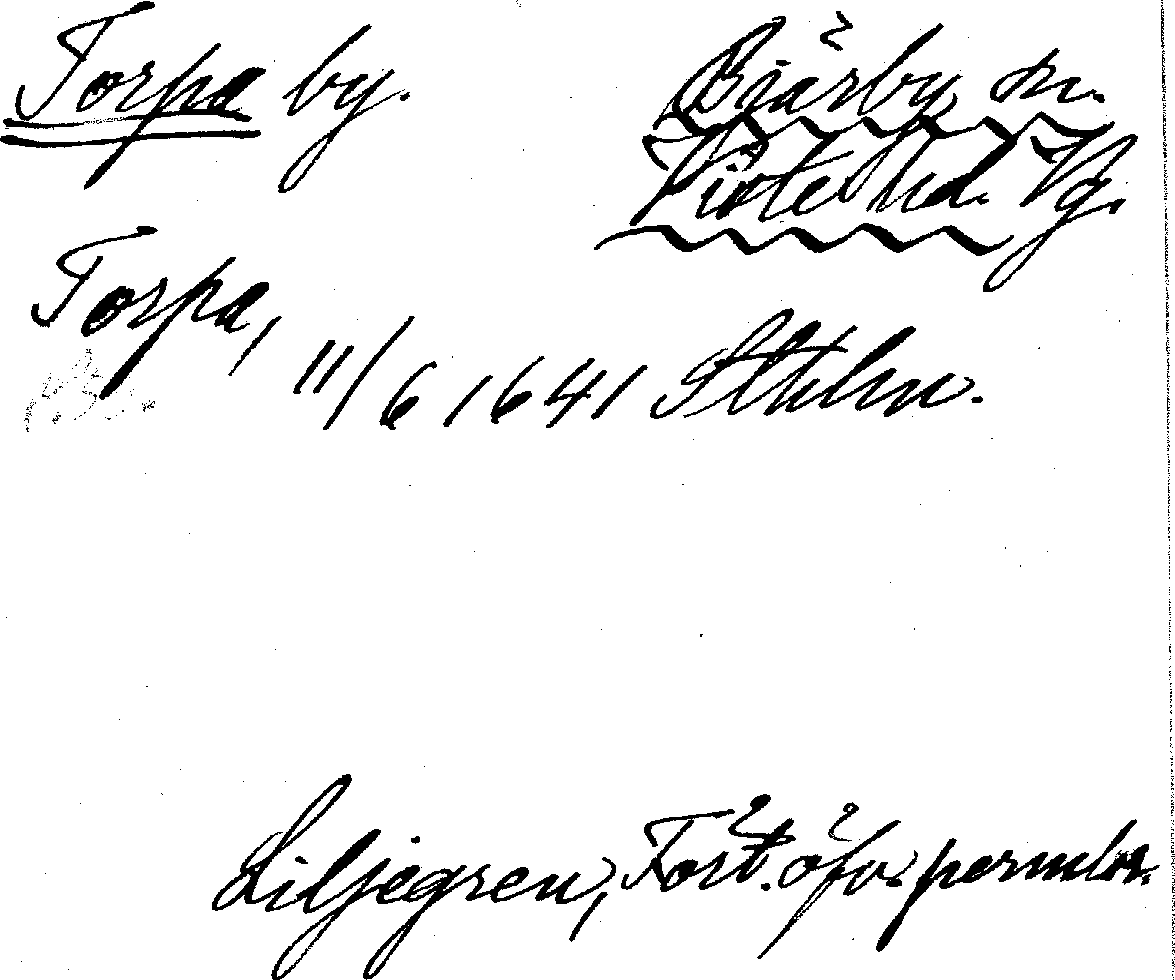 Torpa by.
Bjärby sn.
Viste hd. Vg.
Torpa, 11/6 1641 Sthlm.
Liljegren, Fört. öfv. permbr.